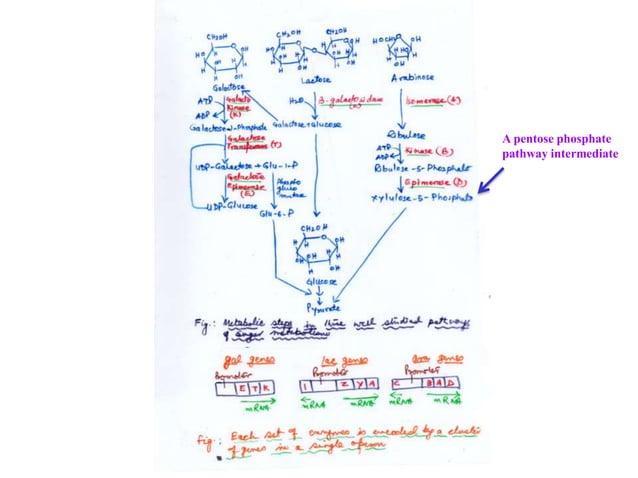 CH2OH
CH2OH
CH2OH
HOCH2
Galactose
Lactose
Arabinose
ATP
ADP
Galacto
Kinase
(K)
H2O
β-galactosidase
(Z)
Isomerase (A)
Galactose-1-Phosphate
Galactose + Glucose
Ribulose
Galactose
Transferase (T)
ATP
ADP
Kinase (B)
UDP-Galactose + Glu-1-P
Ribulose-5-Phosphate
Galactose
Epimerase
(E)
Phospho
gluco
mutase
Epimerase (D)
UDP-Glucose
Glu-6-P
Xylulose-5-Phosphate
A pentose phosphate
pathway intermediate
CH2OH
Glucose
Pyruvate
Fig.: Metabolic steps in three well studied pathways
of sugar metabolism
gal genes
lac genes
ara genes
Promoter
Promoter
Promoter
E T K
I Z Y A
C B A D
mRNA
mRNA
mRNA
mRNA
mRNA
Fig: Each set of enzymes is encoded by a cluster
of genes in a single operon